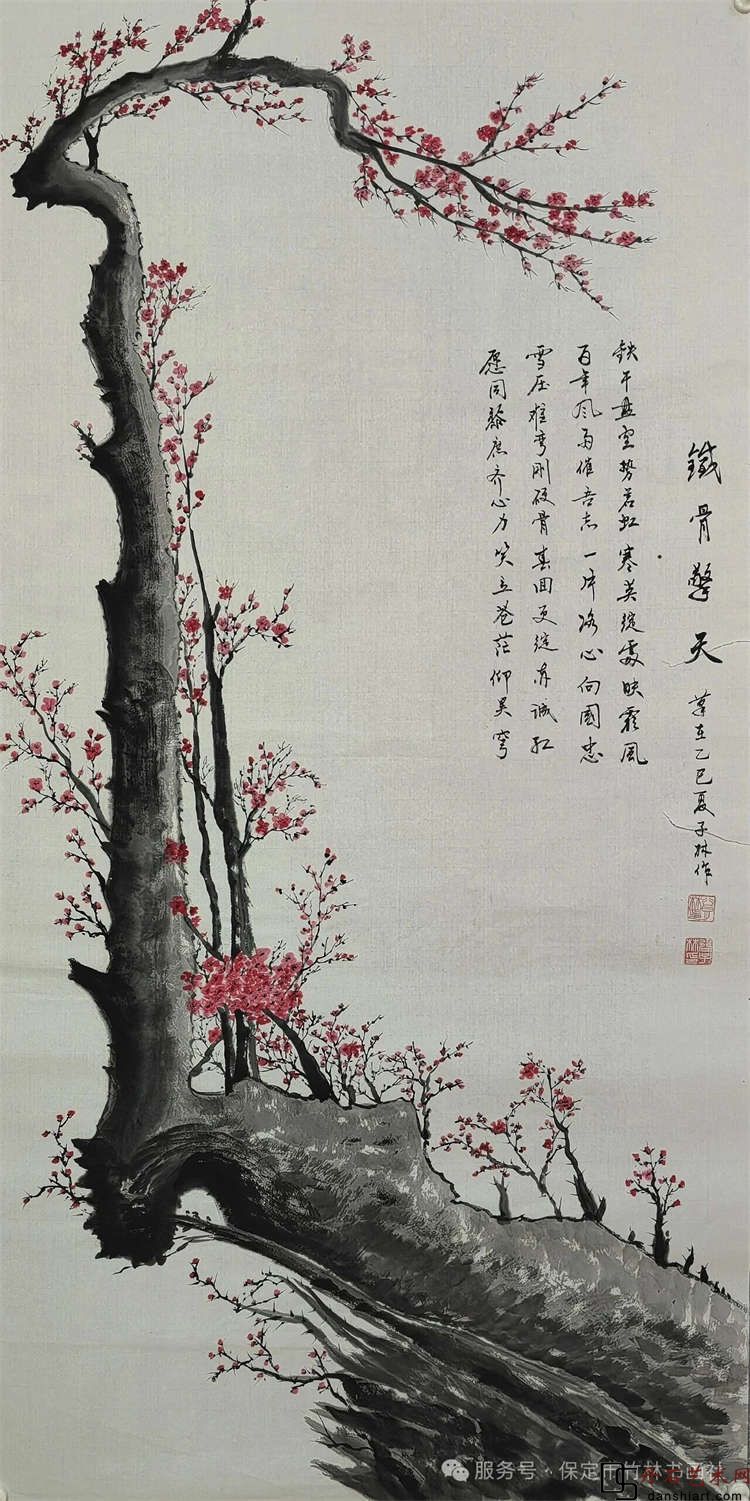 鐵骨擎天
筆在乙巳夏子林作
鉄干盘空势若虹寒英绽處映霜風
百年风雨催吾志一片冰心向國忠
雪压難弯刚硬骨春回更绽赤诚红
愿同黎庶齐心力笑立苍茫仰昊穹
服务号·保定市竹林书画社
danshiart.com